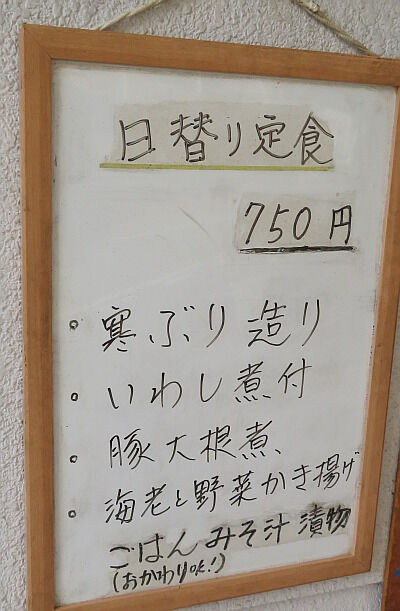 日替り定食
750円
。寒ぶり造り
。いわし煮付
。豚大根煮、
。海老と野菜かき揚げ
ごはん みそ汁 漬物
(おかわりOK!)